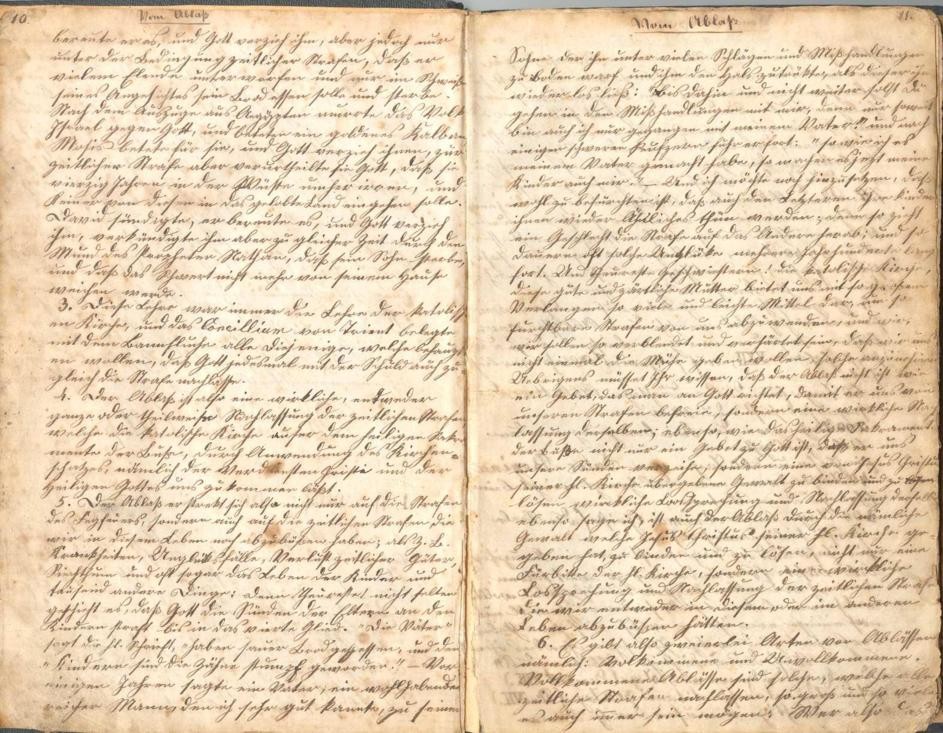 10.
Vom Ablaß
bereute er es, und Gott verzieh ihm, aber jedoch nur
unter der Bedingung zeitlicher Strafen, daß er
vielem Elende unterworfen und nur im Schweiße
seines Angesichtes sein Brod essen solle und sterbe.
Nach dem Auszuge aus Aegypten murrte das Volk
Israel gegen Gott, und betete ein goldenes Kalb an
Moses betete für sie, und Gott verzieh ihnen, zur
zeitlichen Strafe aber verurtheilte sie Gott, daß sie
vierzig Jahre in der Wüste umher irren, und
Keiner von diesen in das gelobte Land eingehen solle.
David sündigte, er bereute es, und Gott verzieh
ihm, verkündigte ihm aber zu gleicher Zeit durch den
Mund des Propheten Nathan, daß sein Sohn sterbe,
und daß das Schwert nicht mehr von seinem Hause
weichen werde.
3. Diese Lehre war immer die Lehre der katolisch
en Kirche, und das Concillium von Trient belegte
mit dem Bannfluche alle Diejenige, welche behaupt
en wollen, daß Gott jedesmal mit der Schuld auch zu
gleich die Strafe nachlasse.
4. Der Ablaß ist also eine wirkliche, entweder
ganze oder theilweise Nachlassung der zeitlichen Strafen
welche die katolische Kirche außer dem heiligen Sakra
mente der Buße, durch Anwendung des Kirchen-
schatzes nämlich der Verdiensten Christi und der
Heiligen Gottes uns zukommen läßt.
5. Der Ablaß erstrekt sich also nicht nur auf die Strafen
des Fegfeuers, sondern auch auf die zeitlichen Strafen die
wir in diesem Leben noch abzubüßen haben; als z. B.
Krankheiten, Unglüksfälle, Verlust zeitlicher Güter,
Siechthum und oft sogar das Leben der Kinder und
tausend andere Dinge: denn theureste! nicht selten
geschieht es, daß Gott die Sünden der Eltern an den
Kindern straft bis in das vierte Glied. "Die Väter"
sagt die hl. Schrift, "haben sauer Brod gegessen, und den
"Kindern sind die Zähne stumpf geworden." — Vor
einigen Jahren sagte ein Vater, ein wohlhabender
reicher Mann, den ich sehr gut kannte, zu seinem
11.
Vom Ablaß
Sohne der ihn unter vielen Schlägen und Mißhandlungen
zu Boden warf und ihm den Hals zudrükte, als dieser ihn
wieder los ließ: "Bis dahin und nicht weiter sollst Du
gehen in den Mißhandlungen mit mir, denn nur soweit
bin auch ich nur gegangen mit meinem Vater!" und nach
einigen schweren Seufzern fuhr er fort: "so wie ich es
meinem Vater gemacht habe, so machen es jezt meine
Kinder auch mir." — Und ich möchte noch hinzusetzen, daß
wohl zu befürchten ist, daß auch den Letzteren ihre Kinder
ihnen wieder Ähliches thun werden; denn so zieht
ein Geschlecht die Strafe auf das Andere herab; und so
dauern oft solche Unglüke mehrere Jahrhunderte lang
fort. Und theureste Geschwistern! die katolische Kirche,
diese gute und zärtliche Mutter bietet uns mit so großem
Verlangen so viele und leichte Mittel dar, um so
furchtbare Strafen von uns abzuwenden, und wir,
wir sollen so verblendet und verhärtet sein, daß wir uns
nicht einmal die Mühe geben wollen, solche anzunehmen.
Uebrigens müsset Ihr wissen, daß der Ablaß nicht ist wie
ein Gebet, das man an Gott richtet, damit er uns von
unseren Strafen befreie, sondern eine wirkliche Nach
lassung derselben; ebenso, wie das heilige Sakrament
der Buße nicht nur ein Gebet zu Gott ist, daß er uns
unsere Sünden verzeihe, sondern eine von Jesus Christus
seiner hl. Kirche übergebene Gewalt zu binden und zu
lösen, wirkliche Lossprechung und Nachlassung derselben
ebenso sage ich, ist auch der Ablaß durch die nämliche
Gewalt welche Jesus Christus seiner hl. Kirche ge-
geben hat, zu binden und zu lösen, nicht nur eine
Fürbitte der hl. Kirche, sondern eine wirkliche
Lossprechung und Nachlassung der zeitlichen Strafen
die wir entweder in diesem oder im anderen
Leben abzubüßen hätten.
6. Es gibt also zweierlei Arten von Ablässen
nämlich: Vollkommene und Unvollkommene.
Vollkommene Ablässe sind solche, welche alle
zeitliche Strafen nachlassen, so groß und so viele
es auch imer sein mögen; Wer also